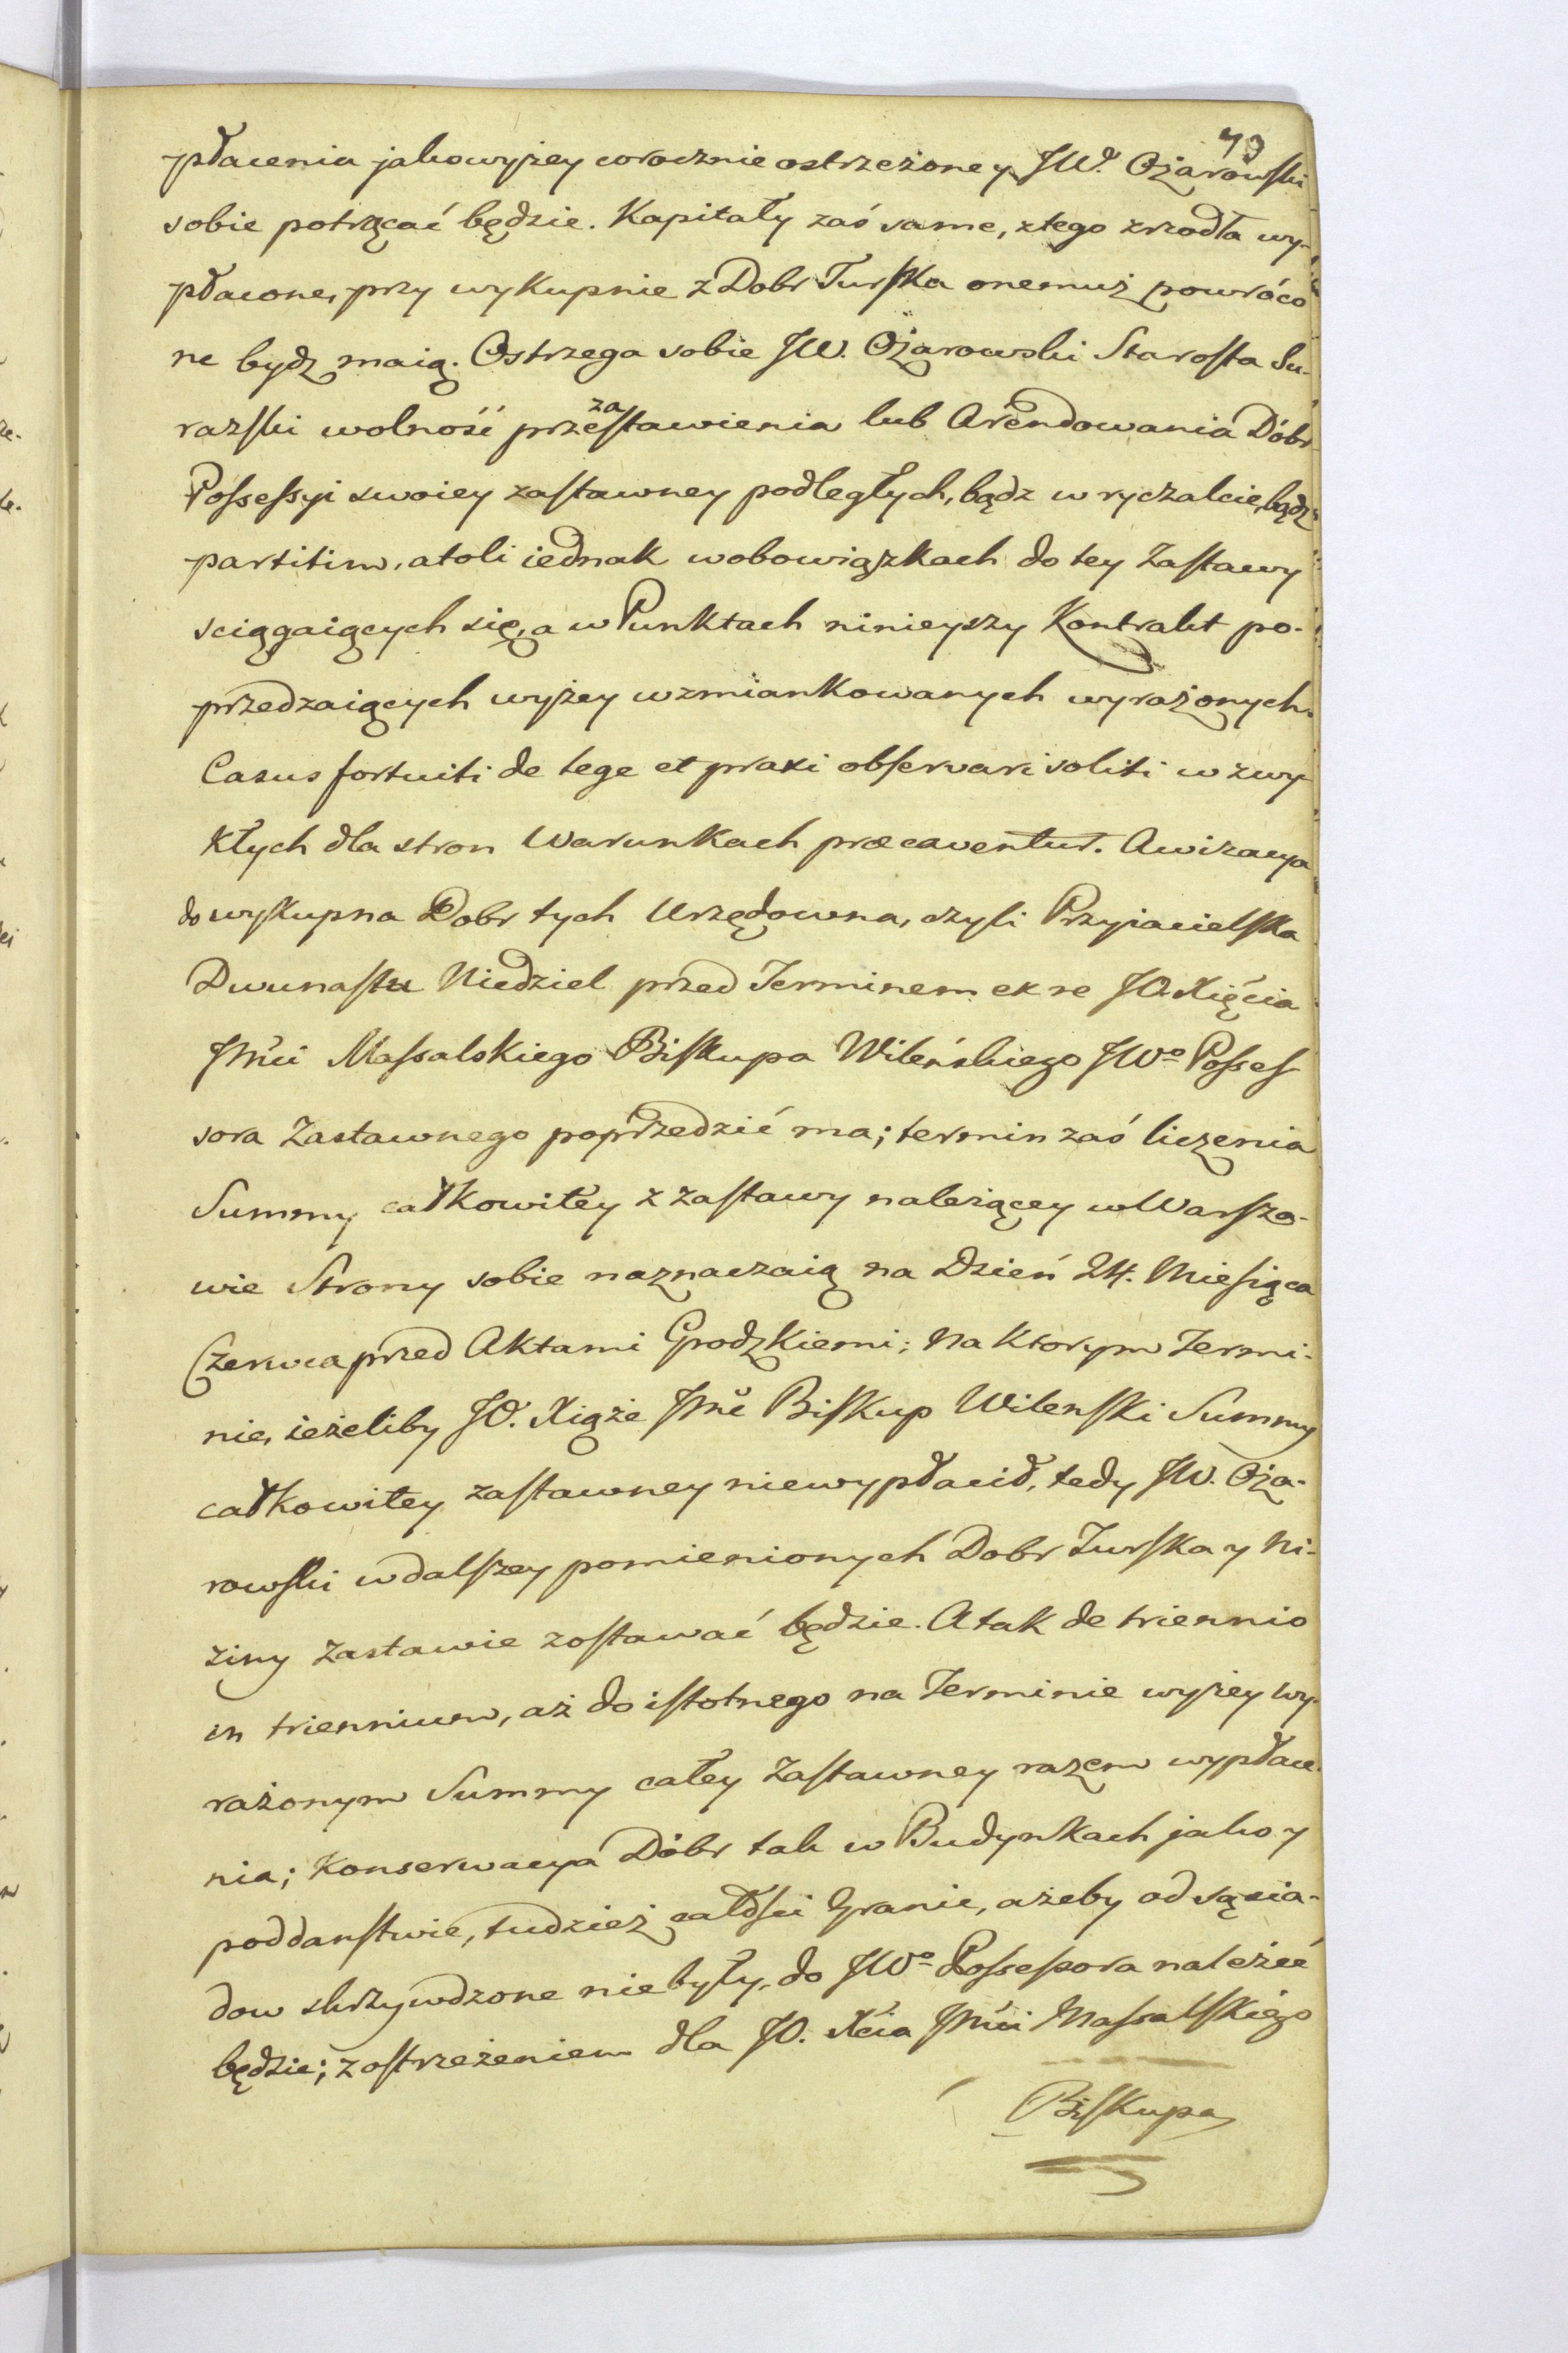 79
płacenia jakowyżey corocznie ostrzeżoney JW.o Ożarowski
sobie potrącać będzie. Kapitały zaś same, z tego zrzodła wy-
płacone, przy wykupnie z Dobr Turska onemuż powróco
ne bydz maią. Ostrzega sobie JW. Ożarowski Starosta Su-
razski wolność przezastawienia lub Arendowania Dóbr
Possessyi swoiey zastawney podległych, bądz w ryczalcie, bądz
partitim, atoli iednak wobowiązkach do tey Zastawy
sciągaiących się, a w Punktach ninieyszy Kontrakt po-
przedzaiących wyżey wzmiankowanych wyrażonych.
Casus fortuiti de lege et praxi observari soliti w zwy
kłych dla stron Warunkach præcaventur. Awizacya
do wykupna Dobr tych Urzędowna, czyli Przyiacielska
Dwunastu Niedziel przed Terminem ex re JO. Xięcia
Jmći Massalskiego Biskupa Wileńskiego JWo Posses
sora Zastawnego poprzedzić ma; termin zaś liczenia
Summy całkowitey z zastawy należącey w Warsza-
wie Strony sobie naznaczaią na Dzień 24. Miesiąca
Czerwca przed Aktami Grodzkiemi; Na ktorym Termi-
nie, ieżeliby JO. Xiąże Jmć Biskup Wilenski Summy
całkowitey zastawney niewypłacił, tedy JW. Oża-
rowski w dalszey pomienionych Dobr Turska y Ni-
ziny Zastawie zostawać będzie. A tak de triennio
in triennium, aż do istotnego na Terminie wyżey wy-
rażonym Summy całey Zastawney razem wypłace
nia; Konserwacya Dóbr tak w Budynkach jako y
poddanstwie, tudzież całości Granic, ażeby od sąsia-
dow skrzywdzone niebyły, do JWo Possessora należeć
będzie; z ostrzeżeniem dla JO. Xcia Jmći Massalskiego
Biskupa